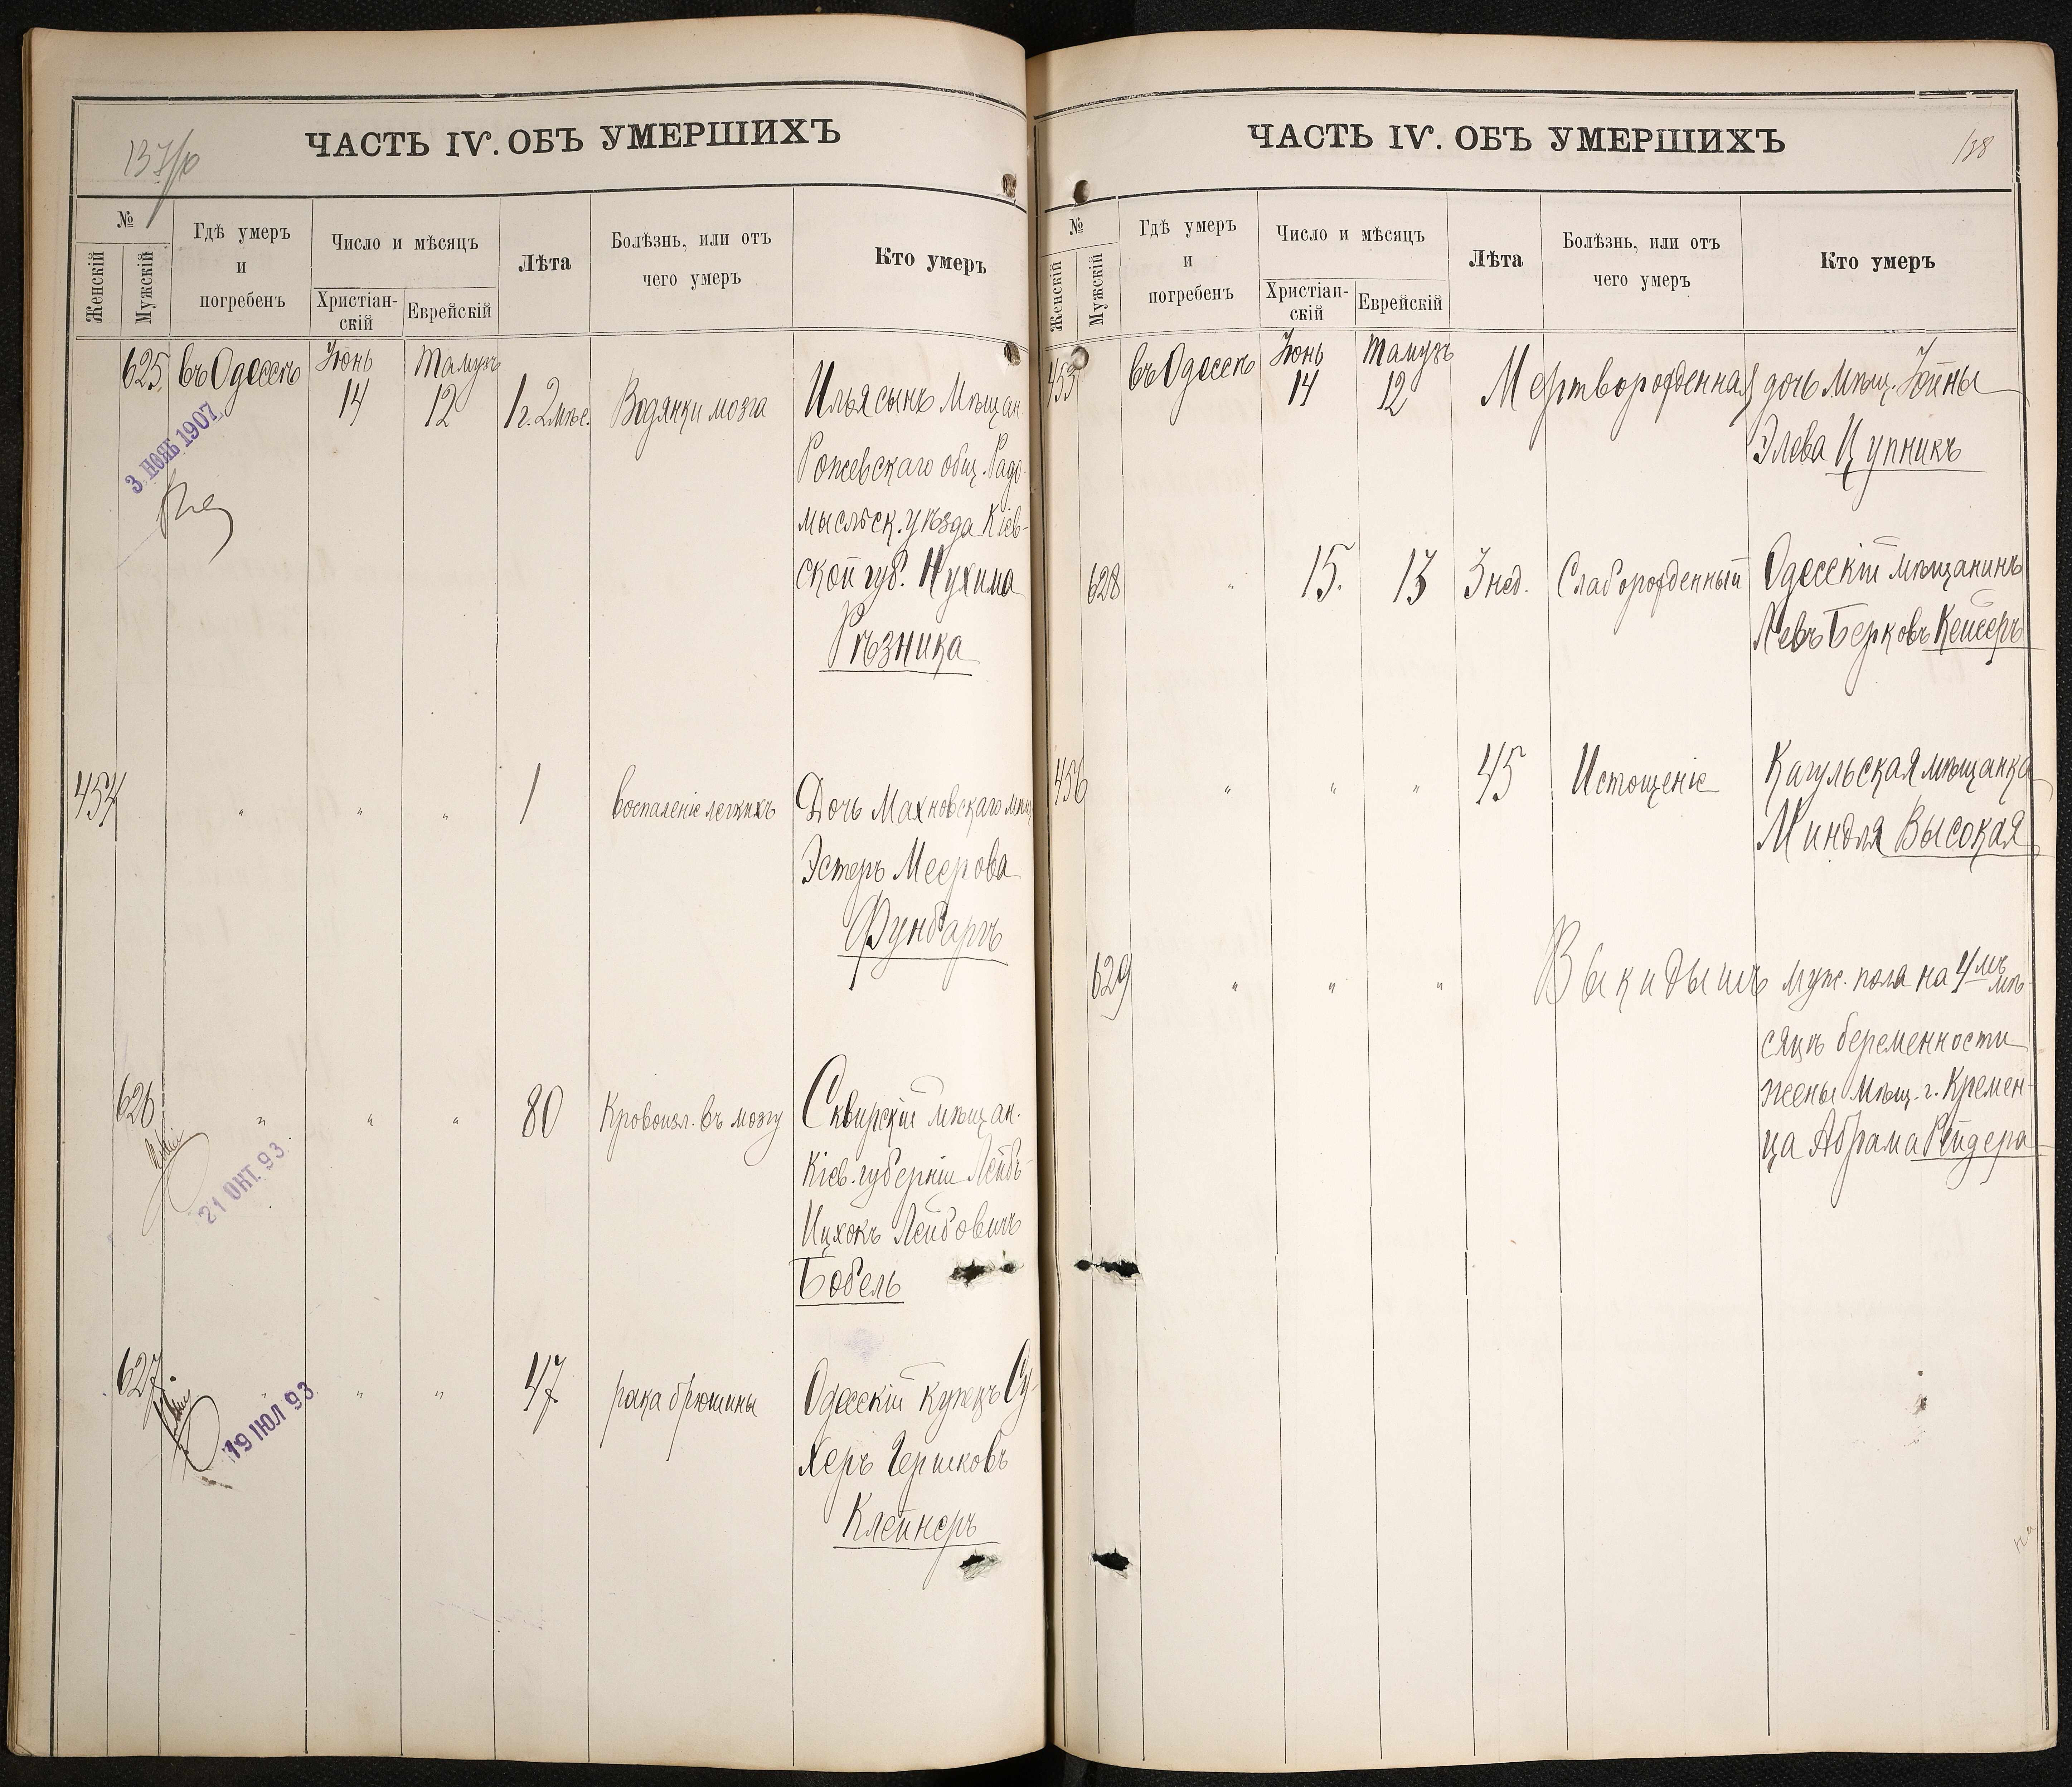 137/10
ЧАСТЬ IV. ОБЪ УМЕРШИХЪ
№
Женскій
Мужскій
Гдѣ умеръ
и
погребенъ
Число и мѣсяцъ
Христіан-
скій
Еврейскій
Лѣта
Болѣзнь, или отъ
чего умеръ
Кто умеръ
625. въ Одессѣ Іюнь 14 Тамузъ 12 1 г. 2 мѣс. Водянки мозга Илья сынъ Мѣщан.
Рожевскаго общ. Радо-
мысльск. уѣзда Кіев-
ской губ. Нухима
Рѣзника
3. НОЯБ 1907
454 " " " 1 воспаленіе легкихъ Дочь Махновскаго мѣщ.
Эстеръ Меерова
Фунбаргъ
626 " " " 80 Кровоизл. въ мозгу Сквирскій мѣщан.
Кіев. губерніи Лейбъ-
Ицхокъ Лейбовичъ
Бобель
21 ОКТ. 93
627. " " " 47 рака брюшины Одесскій купецъ Су-
херъ Гершковъ
Клейнеръ
19 ІЮЛ 93
138
ЧАСТЬ IV. ОБЪ УМЕРШИХЪ
№
Женскій
Мужскій
Гдѣ умеръ
и
погребенъ
Число и мѣсяцъ
Христіан-
скій
Еврейскій
Лѣта
Болѣзнь, или отъ
чего умеръ
Кто умеръ
455 въ Одессѣ Іюнь 14 Тамузъ 12 Мертворожденная дочь мѣщ. Іойны
Элева Цупникъ
628 " 15. 13 3 нед. Слаборожденный Одесскій мѣщанинъ
Левъ Берковъ Кейсеръ
456 " " " 45 Истощеніе Кагульская мѣщанка
Миндля Высокая
629 " " " Выкидышъ муж. пола на 4мъ мѣ-
сяцѣ беременности
жены мѣщ. г. Кремен-
ца Абрама Рейдера